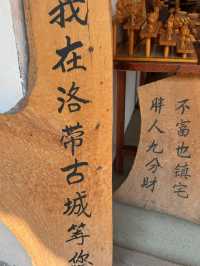 我在洛带古城等您
不富也镇宅
胖人九分财